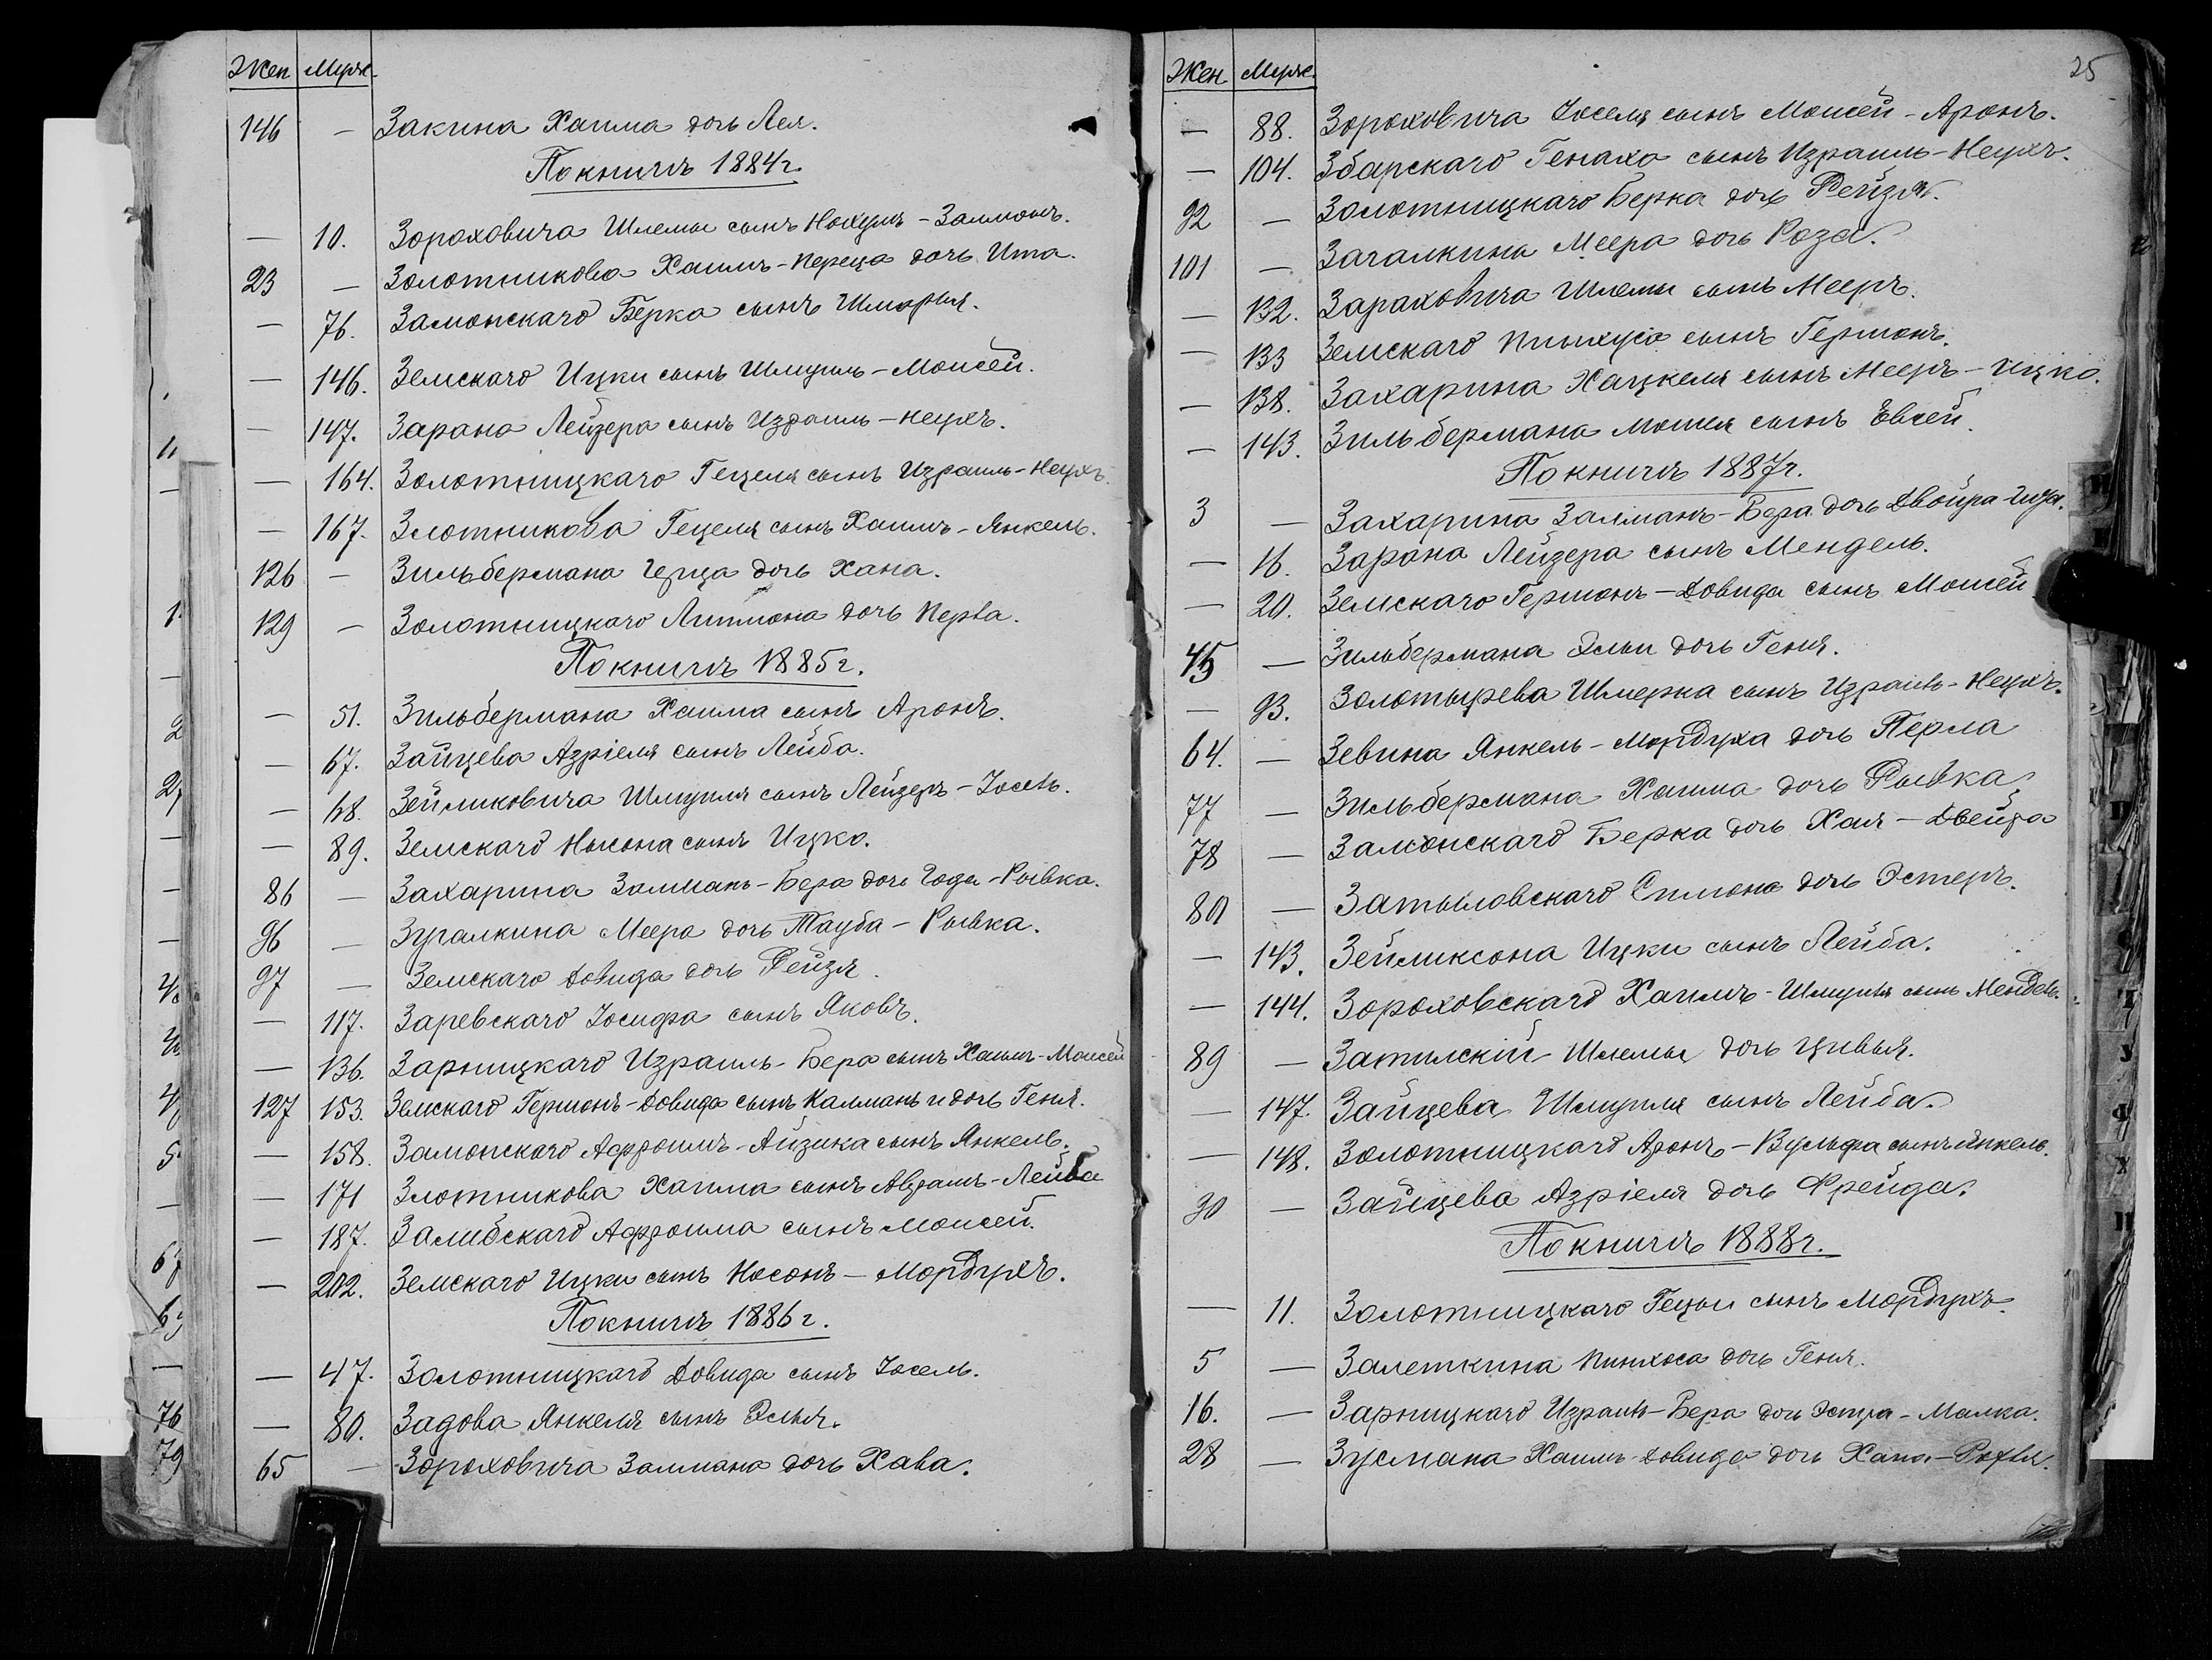 Жен. Муж.
146 — Закина Хаима дочь Лея.
По книгѣ 1884 г.
— 10. Зороховича Шлемы сынъ Нохумъ-Залмонъ.
23 — Золотникова Хаимъ-Переца дочь Ита.
— 76. Замонскаго Берка сынъ Шмарья.
— 146. Земскаго Ицки сынъ Шмуиль-Моисей.
— 147. Зарана Лейзера сынъ Израиль-Неухъ.
— 164. Золотницкаго Гецеля сынъ Израиль-Неухъ.
— 167. Злотникова Гецеля сынъ Хаимъ-Янкель.
126 — Зильбермана Герца дочь Хана.
129 — Золотницкаго Липмона дочь Перла.
По книгѣ 1885 г.
— 51. Зильбермана Хаима сынъ Аронъ.
— 67. Зайцева Азріеля сынъ Лейба.
— 68. Зейликовича Шмуиля сынъ Лейзеръ-Іосель.
— 89. Земскаго Нысона сынъ Ицко.
86 — Захарина Залманъ-Бера дочь Года-Рывка.
96 — Зугалкина Меера дочь Тауба-Рывка.
97 — Земскаго Довида дочь Фейзя.
— 117. Заревскаго Іосифа сынъ Яковъ.
— 136. Зарницкаго Израиль-Бера сынъ Хаимъ-Моисей
127 153. Земскаго Гершонъ-Довида сынъ Калманъ и дочь Геня.
— 158. Замонскаго Афроимъ-Айзика сынъ Янкель.
— 171 Злотникова Хаима сынъ Аврамъ-Лейба
— 187. Замбскаго Афроима сынъ Моисей.
— 202. Земскаго Ицки сынъ Носонъ-Мордухъ.
По книгѣ 1886 г.
— 47. Золотницкаго Довида сынъ Іосель.
— 80. Задова Янкеля сынъ Элья.
65 — Зороховича Залмана дочь Хава.
25
Жен. Муж.
— 88. Зороховича Іоселя сынъ Моисей-Аронъ.
— 104. Збарскаго Генаха сынъ Израиль-Неухъ.
92 — Золотницкаго Берка дочь Фейзя.
101 — Загалкина Меера дочь Роза.
— 132. Зараховича Шлемы сынъ Мееръ.
— 133 Земскаго Пинхуса сынъ Гершонъ.
— 138. Захарина Хацкеля сынъ Мееръ-Ицко.
— 143. Зильбермана Мошея сынъ Евсей.
По книгѣ 1887 г.
3 — Захарина Залманъ-Бера дочь Двойра-Гита.
— 16. Зарана Лейзера сынъ Мендель.
— 20. Земскаго Гершонъ-Довида сынъ Моисей
45 — Зильбермана Эльи дочь Геня.
— 93. Золотырева Шмерка сынъ Израиль-Неухъ.
64. — Зевина Янкель-Мордуха дочь Перла
77 — Зильбермана Хаима дочь Рывка.
78 — Замонскаго Берка дочь Хая-Двейра
80 — Затыловскаго Симона дочь Эстеръ.
— 143. Зейликсона Ицки сынъ Лейба.
— 144. Зороховскаго Хаимъ-Шмуиля сынъ Мендель.
89 — Затилскій Шлемы дочь Цивья.
— 147. Зайцева Шмуиля сынъ Лейба.
— 148. Золотницкаго Аронъ-Вульфа сынъ Янкель.
90 — Зайцева Азріеля дочь Фрейда.
По книгѣ 1888 г.
— 11. Золотницкаго Гецы сынъ Мордухъ.
5 — Залеткина Пинхоса дочь Геня.
16. — Зарницкаго Израиль-Бера дочь Эстра-Малка.
28 — Зусмана Хаимъ-Довида дочь Хана-